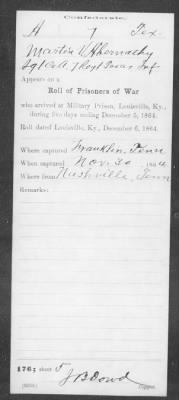 Confederate.
A 7 Tex.
Martin V Abernathy
Sgt Co A, 7 Regt Texas Inf
Appears on a
Roll of Prisoners of War
who arrived at Military Prison, Louisville, Ky.,
during five days ending December 5, 1864.
Roll dated Louisville, Ky., December 6, 1864.
Where captured Franklin, Tenn
When captured Nov. 30, 1864
Where from Nashville, Tenn
Remarks:
176; sheet 5
J B Dowd
Copyist.